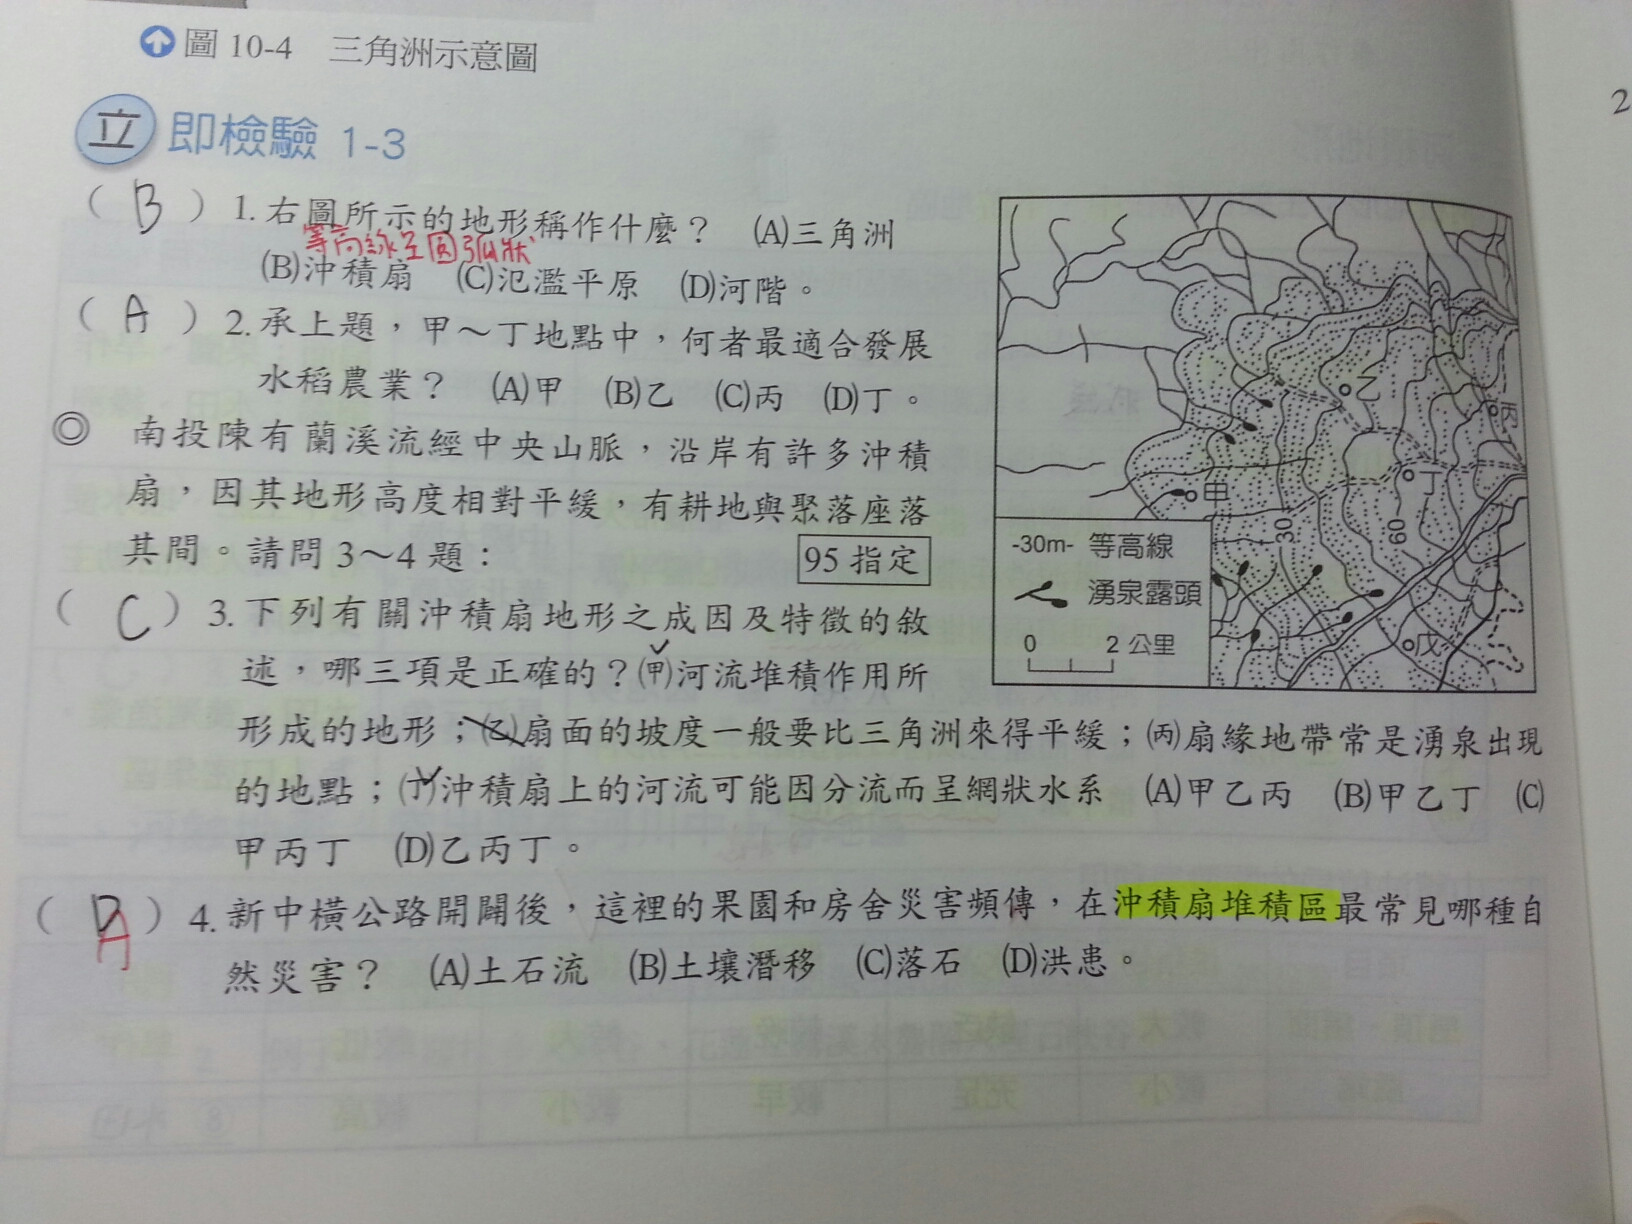 圖 10-4 三角洲示意圖
立即檢驗 1-3
( B ) 1. 右圖所示的地形稱作什麼? (A)三角洲
等高線呈圓弧狀
(B)沖積扇 (C)氾濫平原 (D)河階。
( A ) 2. 承上題,甲~丁地點中,何者最適合發展
水稻農業? (A)甲 (B)乙 (C)丙 (D)丁。
◎ 南投陳有蘭溪流經中央山脈,沿岸有許多沖積
扇,因其地形高度相對平緩,有耕地與聚落座落
其間。請問3~4題: 95 指定
( C ) 3. 下列有關沖積扇地形之成因及特徵的敘
述,哪三項是正確的?(甲)河流堆積作用所
形成的地形;(乙)扇面的坡度一般要比三角洲來得平緩;(丙)扇緣地帶常是湧泉出現
的地點;(丁)沖積扇上的河流可能因分流而呈網狀水系 (A)甲乙丙 (B)甲乙丁 (C)
甲丙丁 (D)乙丙丁。
( D A ) 4. 新中橫公路開闢後,這裡的果園和房舍災害頻傳,在沖積扇堆積區最常見哪種自
然災害? (A)土石流 (B)土壤潛移 (C)落石 (D)洪患。
乙
丙
丁
甲
30
60
戊
-30m- 等高線
湧泉露頭
0 2 公里
2